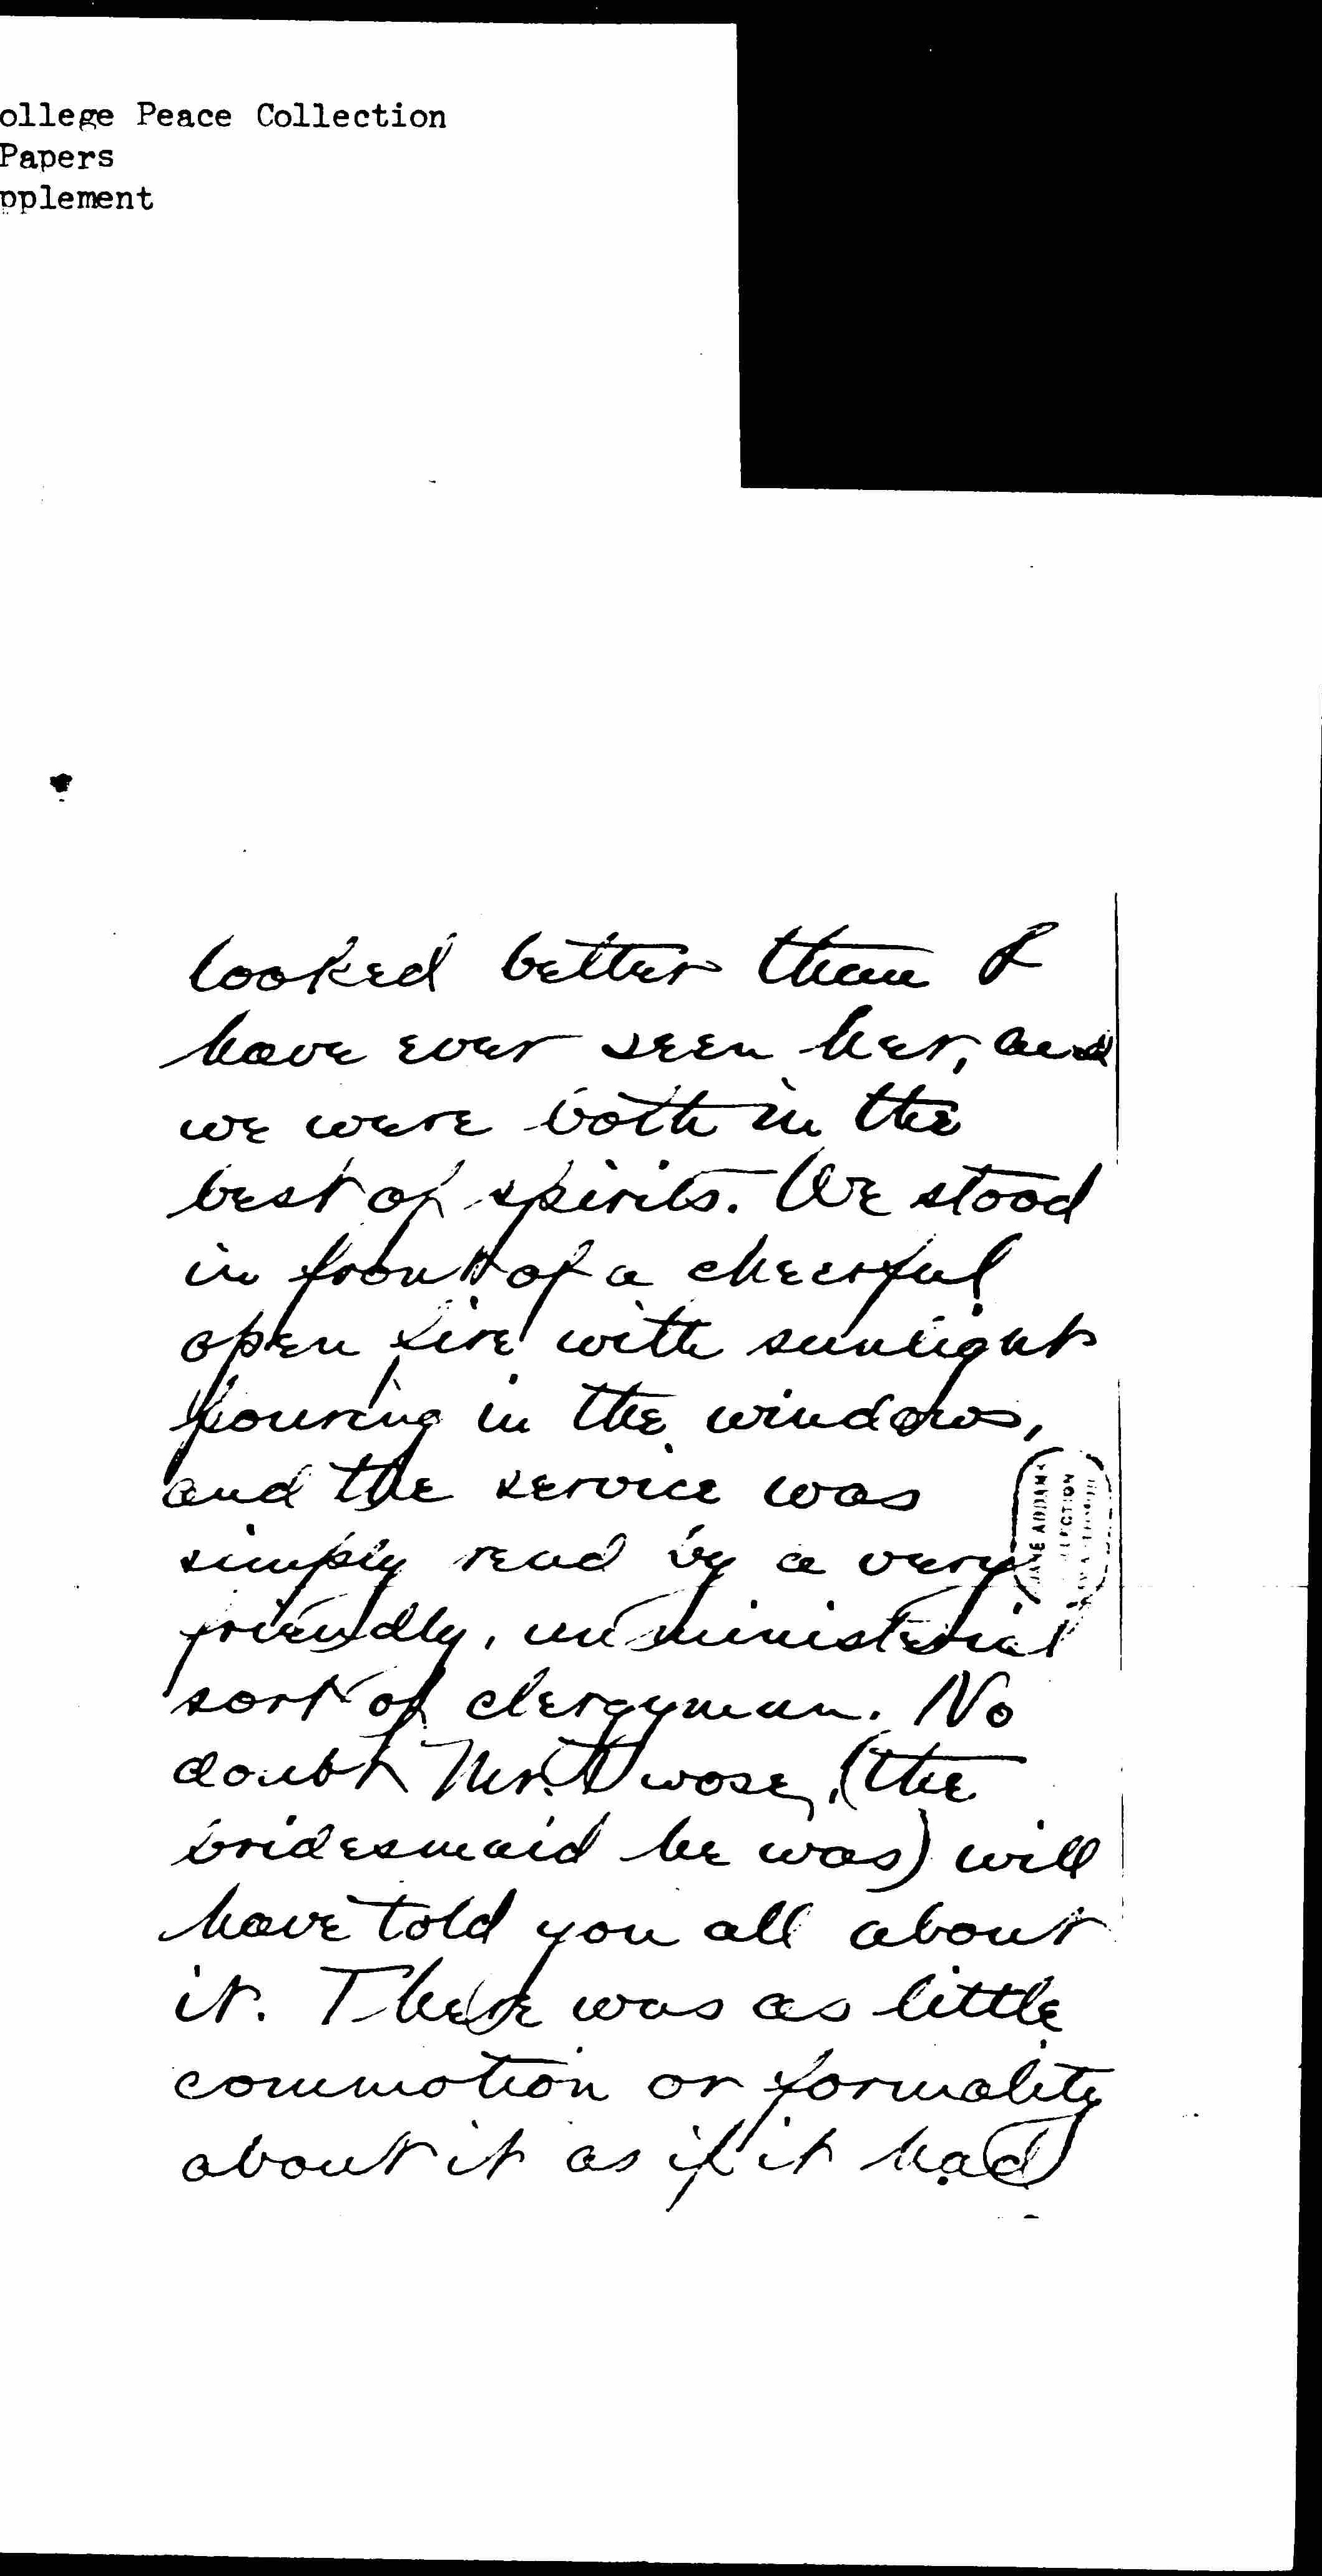 ollege Peace Collection
Papers
pplement
looked better than I
have ever seen her, and
we were both in the
best of spirits. We stood
in front of a cheerful
open fire with sunlight
pouring in the windows,
and the service was
simply read by a very
friendly, unministerial
sort of clergyman. No
doubt Mr. Twose, (the
bridesmaid he was) will
have told you all about
it. There was as little
commotion or formality
about it as if it had
JANE ADDAMS
COLLECTION